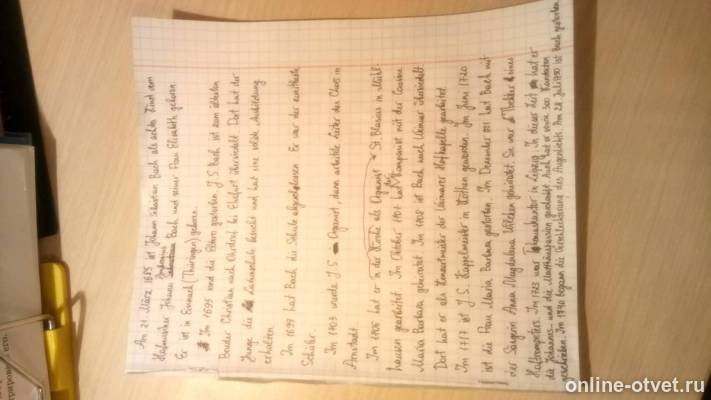 Am 21. März 1685 ist Johann Sebastian Bach als achte Kind am
Hofmusiker Johann Ambrosius Bach und seiner Frau Elisabeth geboren.
Er ist in Eisenach (Thüringen) geboren.
In 1695 sind die Eltern gestorben J. S. Bach ist zum ältesten
Bruder Christian nach Ohrdruf bei Erfurt übersiedelt Dort hat der
Junge die Lateinschule besucht und hat eine solide Ausbildung
erhalten
In 1699 hat Bach die Schule abgeschlossen Er war der
Schüler
In 1703 wurde J. S. Organist, dann arbeitete Leiter des Chors in
Arnstadt
Im 1706 hat er in der Kirche als Organist St Blasius in Mühl-
hausen gearbeitet. Im Oktober 1707 hat der Komponist mit der Cousine
Maria Barbara geheiratet Im 1708 ist Bach nach Weimar übersiedelt
Dort hat er als Konzertmeister der Weimarer Hofkapelle gearbeitet.
Im 1717 ist J. S. Kappelmeister in Köthen geworden Im Juni 1720
ist die Frau Maria Barbara gestorben. Im Dezember 1721 hat Bach mit
der Sängerin Anna Magdalena Wilcken geheiratet. Sie war Tochter eines
Hoftrompeters Im 1723 war Thomaskantor in Leipzig. In dieser Zeit hat er
die Johannes- und die Matthäuspassion Auch hat er etwa 300 Kantaten
geschrieben. Im 1740 begann die Verschlechterung des Augenlichts. Am 28 Juli 1750 ist Bach gestorben
online-otvet.ru